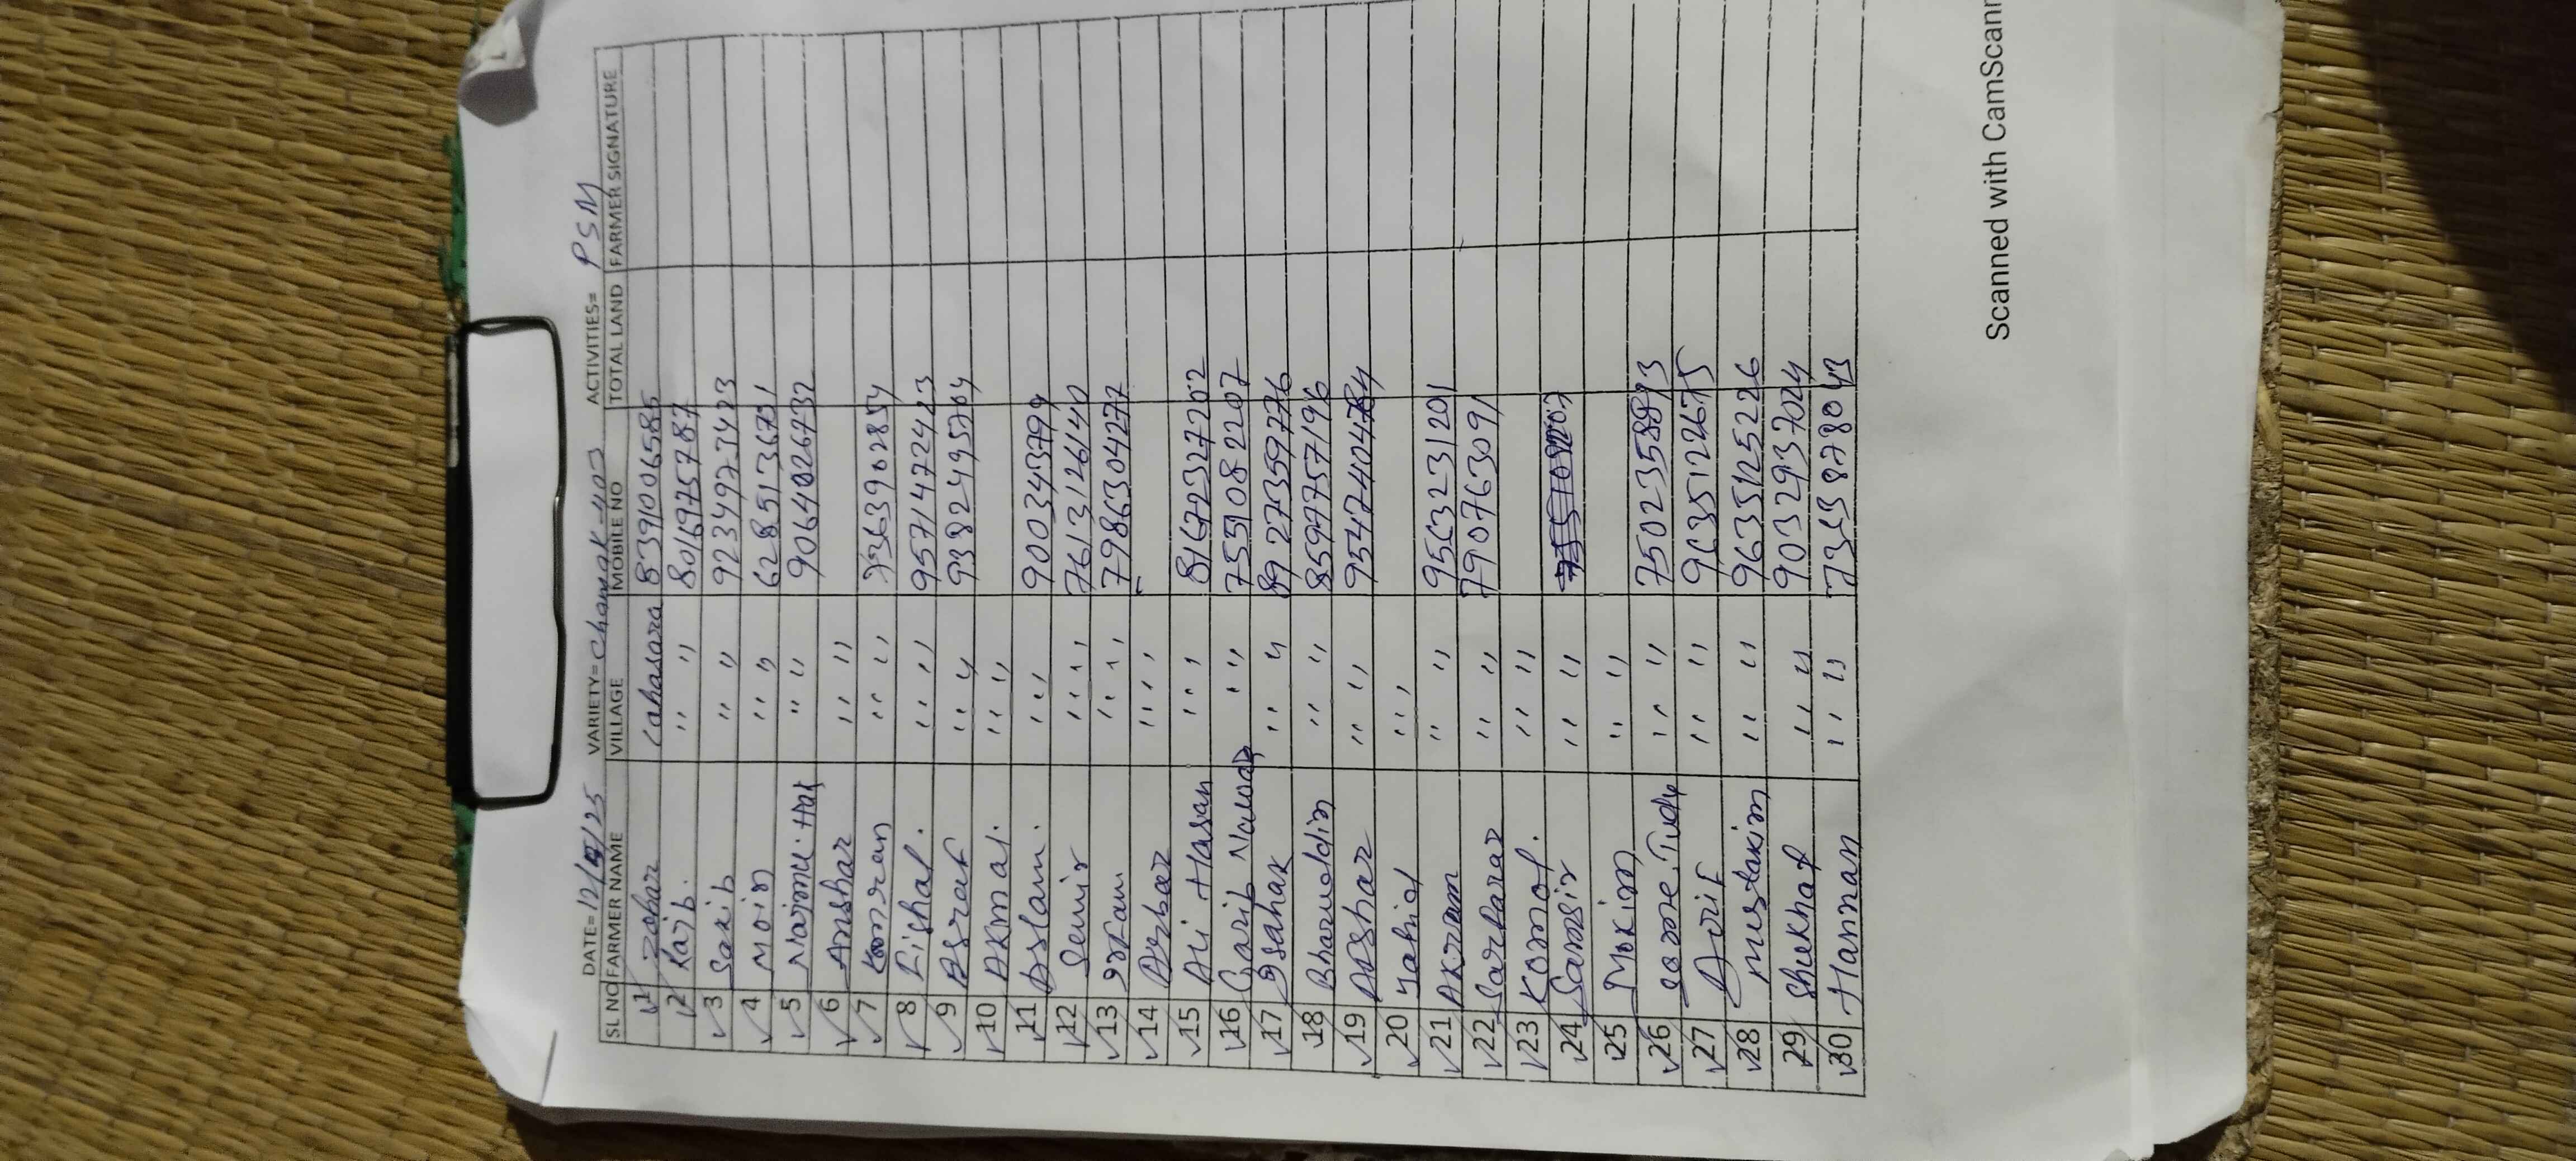 DATE= 12/5/25 VARIETY= Chamak-403 ACTIVITIES= PSM
SL NO FARMER NAME VILLAGE MOBILE NO TOTAL LAND FARMER SIGNATURE
1 Zohar Cahasara 8391006585
2 Rajib. " " 8016975787
3 Sakib " " 9234973423
4 Moin " " 6285136751
5 Najmul Hak " " 9064026732
6 Anshar " "
7 Komran " " 7363902854
8 " " 9571472423
9 Asraf " " 9382495764
10 Akmal. " "
11 Aslam. " " 9003434799
12 Samir " " 7613126140
13 Ikram " " 7986304277
14 Arbaz " "
15 Ali Hasan " " 8167232702
16 Garib Nawaz " " 7551082207
17 Isahak " " 8927359776
18 Bharuddin " " 8597757196
19 Afshar " " 9547404784
20 Yahid " "
21 Akram " 9563231201
22 Sarfaraz " " 7907763091
23 Komol. " "
24 Samsir " "
25 Mokim " "
26 " " 7502355893
27 Arif " " 9635122675
28 Mustakim " " 9635125226
29 Shekhar " " 9032937024
30 Hannan " " 7365878043
Scanned with CamScann